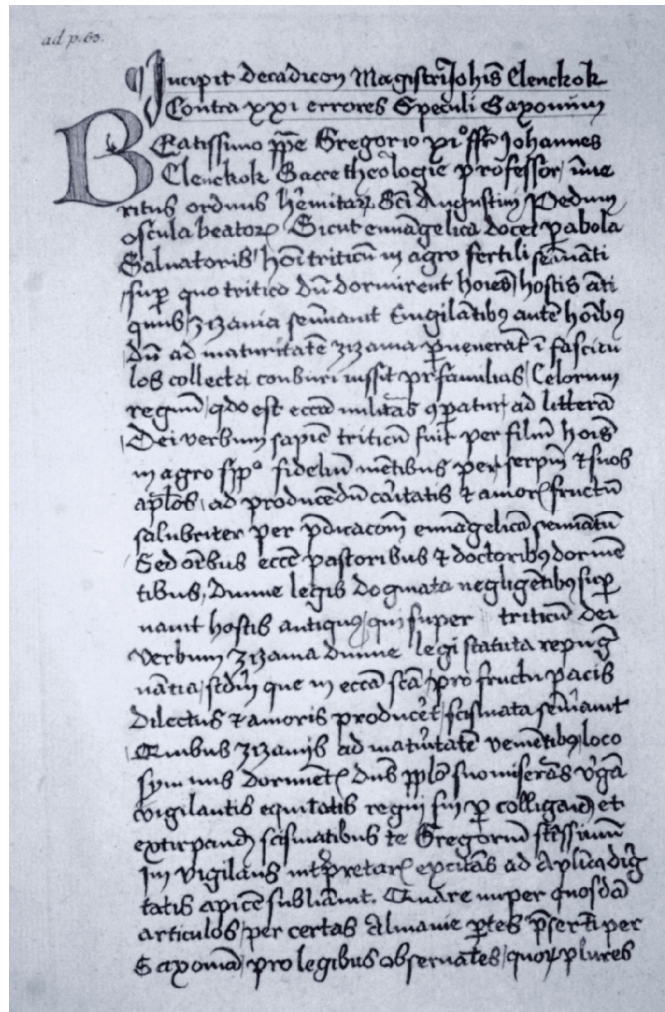 ad p. 63.
Incipit decadicon Magistri Joh̄is Clenckok
Contra xxi errores Speculi Saxonum
BEatissimo pp̄e Gregorio xiº ffr̄ Johannes
Clenckok Sacre theologie professor, īme
ritus ordinis h̄emitarꝝ Sc̄i Augustini Pedum
oscula beatorꝝ Sicut ewāgelica docet pabola
Salvatoris hōi triticum in agro fertili semīnāti
sup̄ quo tritico dū dormirent hoīes hostis āti
quus zizania semīnavit Evigilantibꝰ autē hōībꝰ
dū ad maturitatē zizania pervenerāt ī fascicu
los collecta conburi iussit pr̄familias Celorum
regnū qdo est ecc̄a militās ꝯparatur ad litterā
Dei verbum sapiē triticū fuit per filiū hoīs
in agro fidelium mētibus per serpm̄ ⁊ suos
ap̄los, ad producēdū caritatis ⁊ amorꝭ fructū
salubriter per p̄dicacōm ewāgelicā semīatū
Sed oībus ecc̄e pastoribus ⁊ doctoribꝰ dormiē
tibus, divine legis dogmata negligētibꝰ sup̄
navit hostis antiquꝰ, qui super triticū dei
verbum zizania divine legi statuta repuḡ
nātia, que in ecc̄a sc̄a, pro fructu pacis
dilectus ⁊ amoris producēt, scismata semīavit
Quibus zizanijs ad maturitatē veniētibꝰ loco
dormiēt dn̄s pplo suo miserās v̄ga
vigilantis equitatis regni sui p̄ colligand et
extirpand scismatibus te Gregoriū
vigilans int̄pretarꝭ excitās ad aplicā diḡ
tatis apicē subliavit. Quare nuper quosdā
articulos, per certas Almanie p̄tes p̄sertī per
Saxoniā, pro legibus observātes, quorꝝ plures